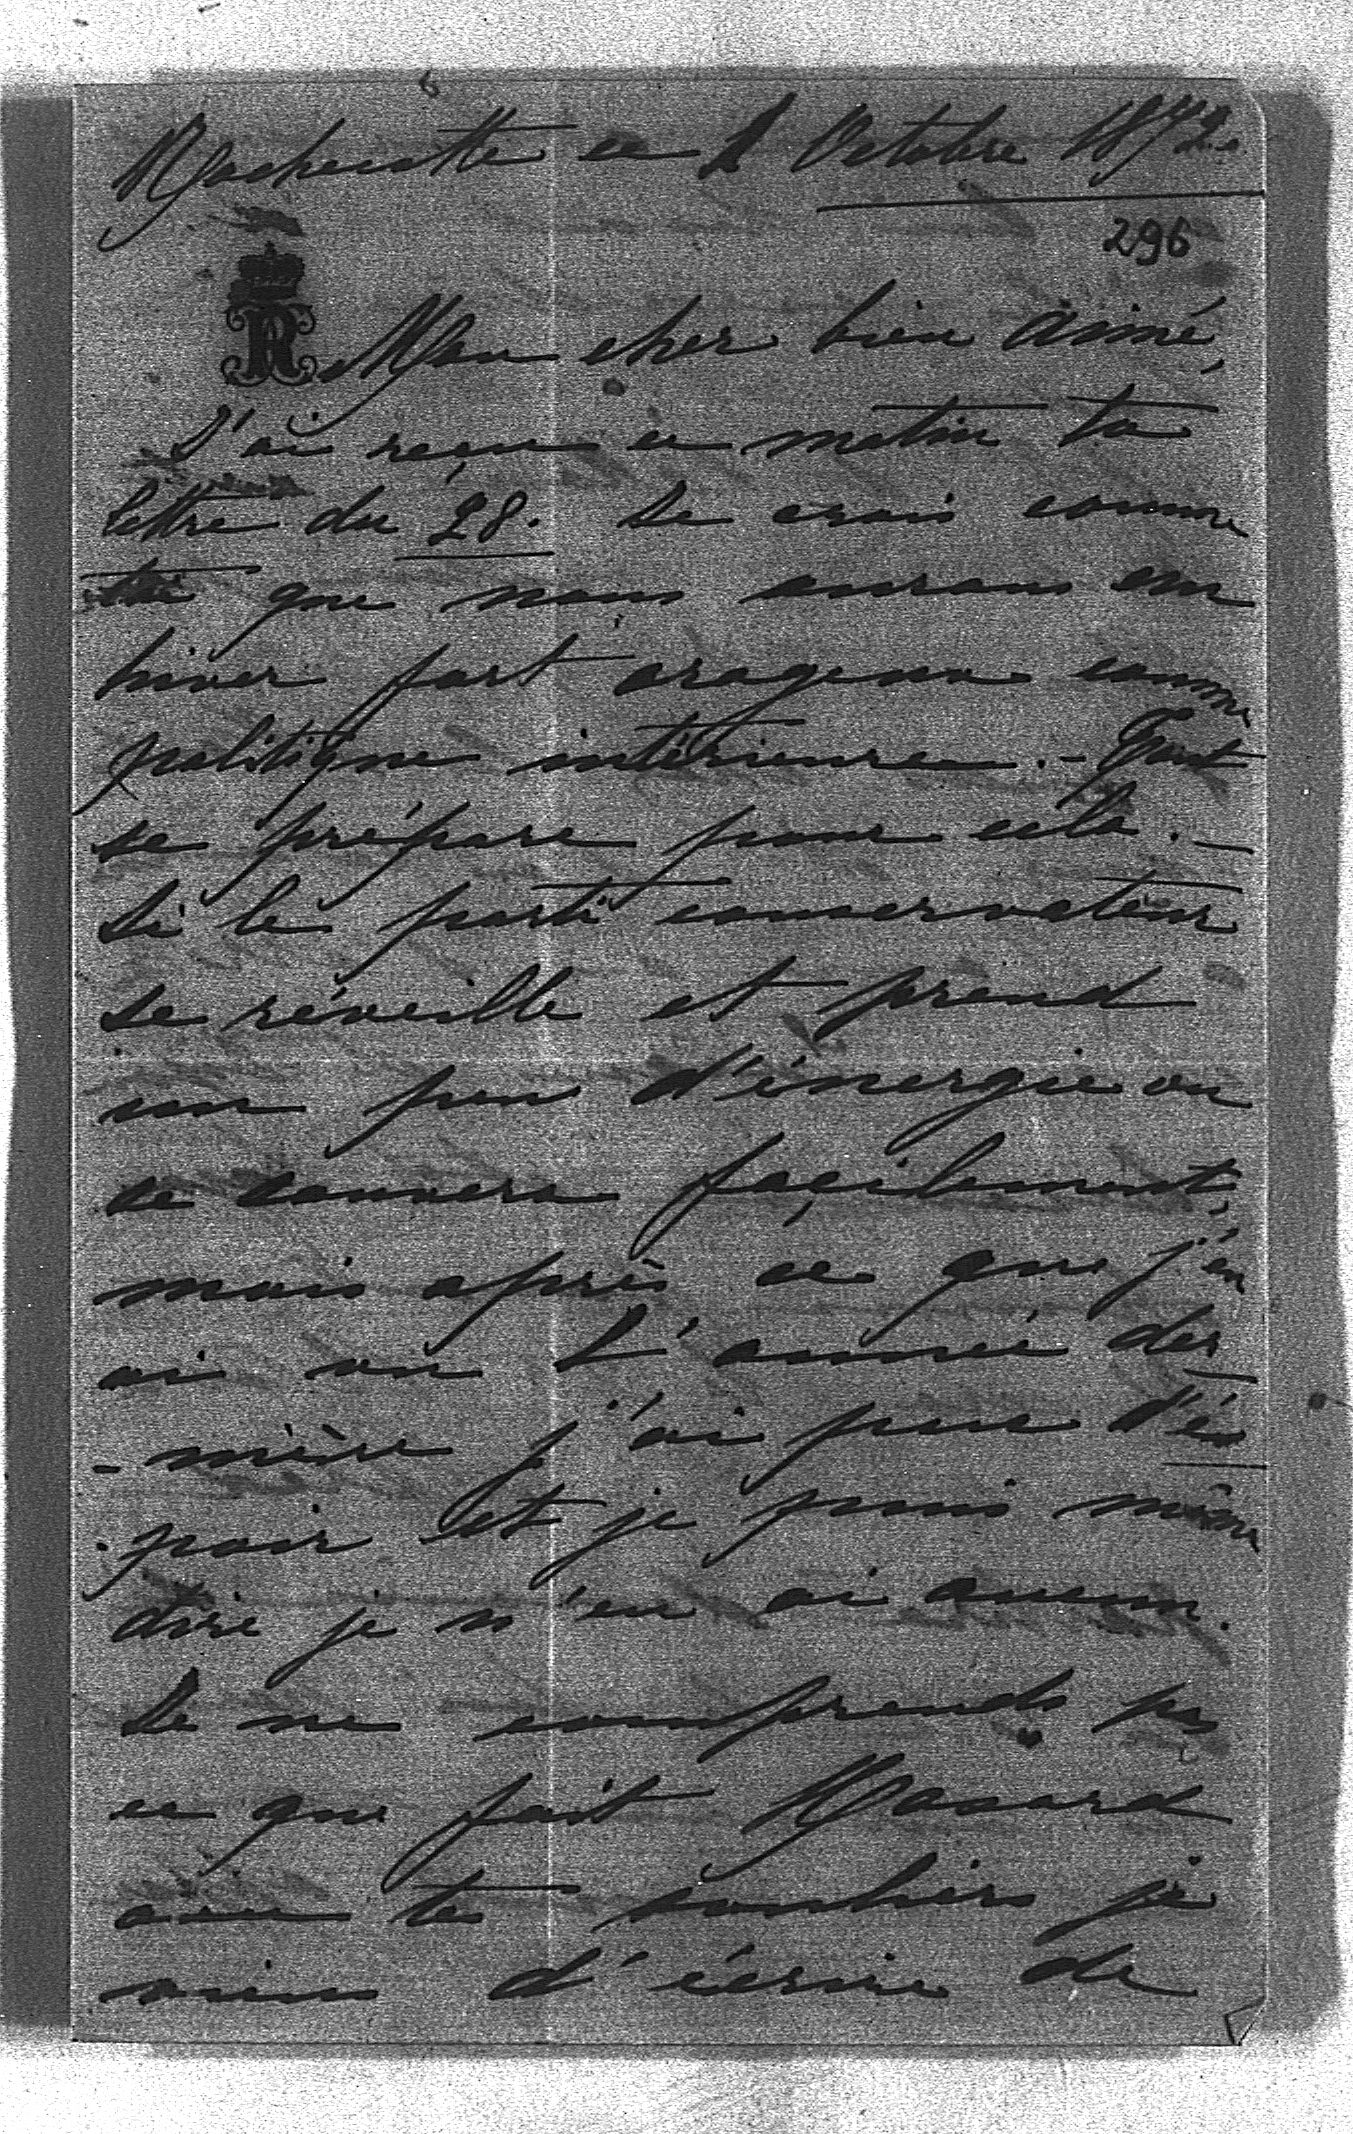 Rochecotte ce 1 Octobre 1872.
296
R
Mon cher bien aimé,
J'ai reçu ce matin ta
lettre du 28. Je crois comme
toi que nous aurons un
hiver fort orageux comme
politique intérieure. - Tout
se prépare pour cela. -
Si le parti conservateur
se réveille et prend
un peu d'énergie on
se sauvera façilement,
mais après ce que j'en
ai vu l'année der
- nière j'ai peu d'és
- poir et je puis même
dire je n'en ai aucun.
Je ne comprends pas
ce que fait
avec tes souliers je
viens d'écrire de